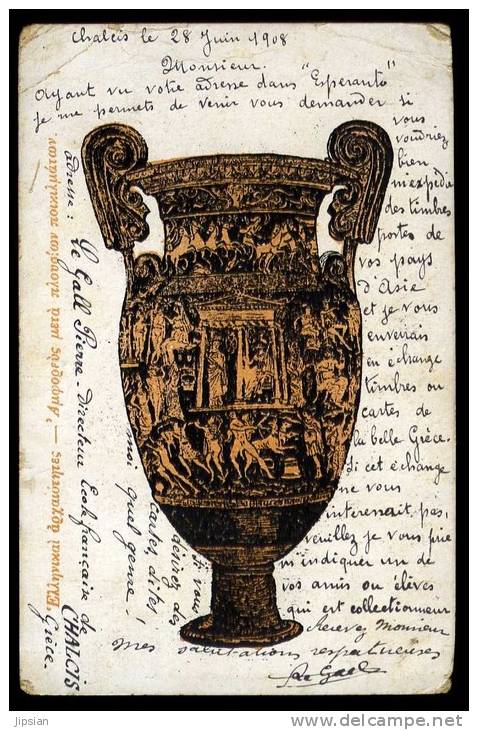 Chalcis le 28 Juin 1908
Monsieur.
Ayant vu votre adresse dans "Esperanto"
je me permets de venir vous demander si
vous
voudriez
bien
m'expédier
des timbres
postes de
vos pays
d'Asie
et je vous
enverrais
en échange
timbres ou
cartes de
la belle Grèce.
Si cet échange
ne vous
interessait pas,
veuillez je vous prie
m'indiquer un de
vos amis ou élèves
qui est collectionneur
Recevez Monsieur
mes salutations respectueuses
Le Gall
Si vous
désirez des
cartes, dites
moi quel genre!
adresse: Le Gall Pierre - Directeur Ecole française de
CHALCIS
Grèce.
jipsian
www.delcampe.net